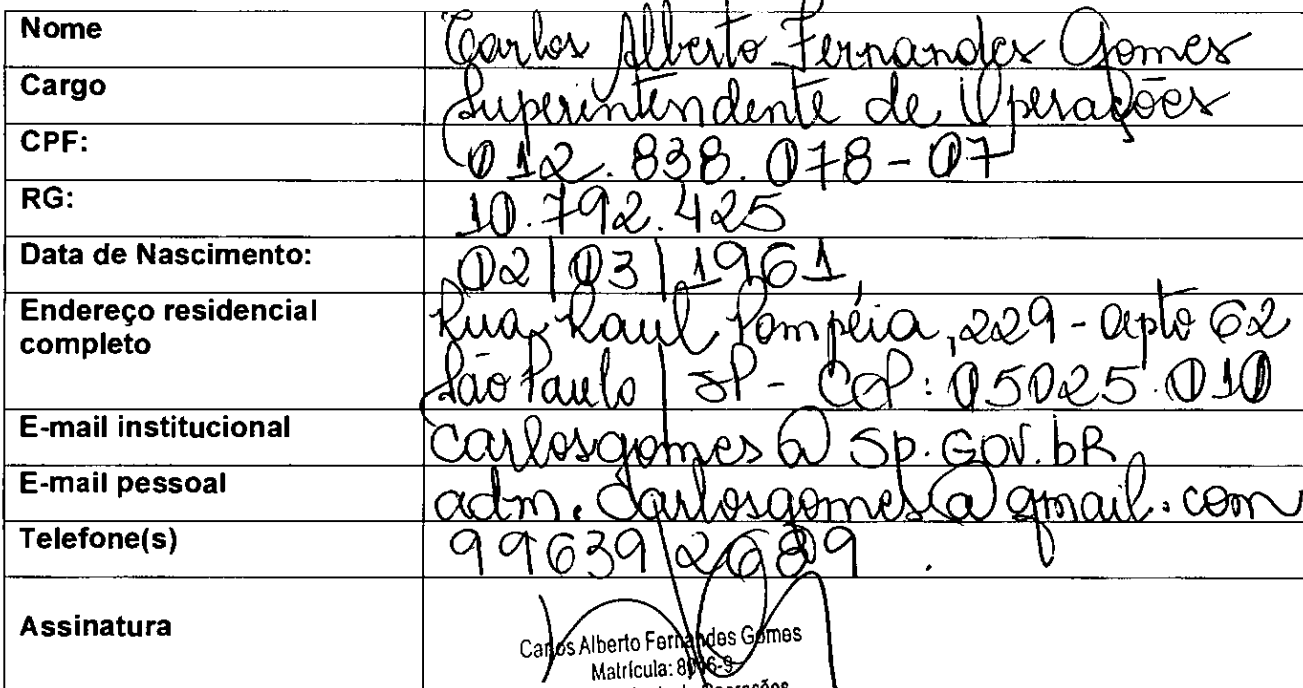 Nome Carlos Alberto Fernandes Gomes
Cargo Superintendente de Operações
CPF: 012.838.078-07
RG: 10.792.425
Data de Nascimento: 02|03|1961
Endereço residencial Rua Raul Pompéia, 229 - apto 62
completo
São Paulo | SP - CEP: 05025.010
E-mail institucional carlosgomes@sp.GOV.bR
E-mail pessoal adm.carlosgomes@gmail.com
Telefone(s) 99639
Assinatura
Carlos Alberto Fernandes Gomes
Matrícula: